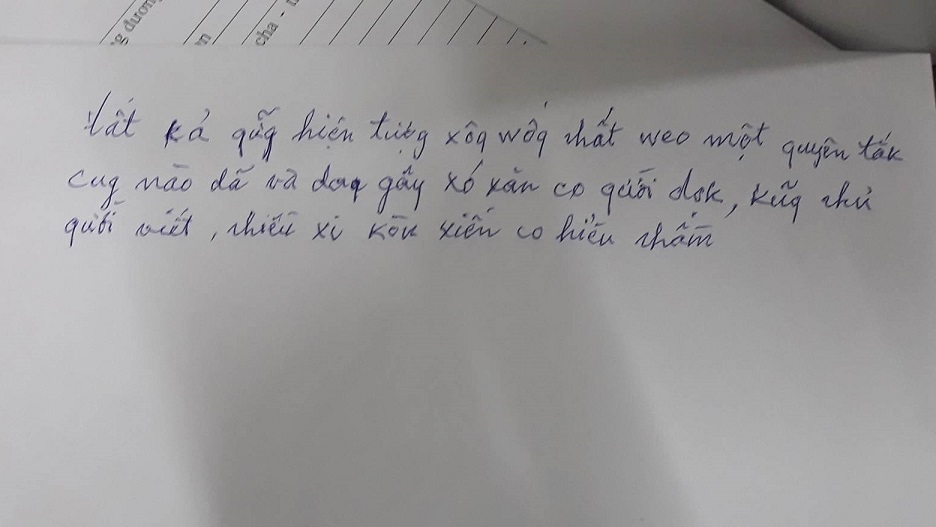 g dương
n
cha -
tất kả qữq hiện tượg xôq wốq n'hất weo một quyên ták
cuq nào dấ và daq gây xó xăn co qười dok, kũq n'hủ
qười viết, n'hiều xi kòn xiến co hiểu n'hầm